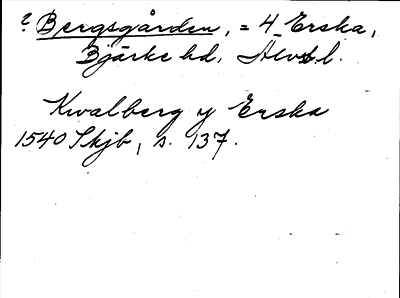 ? Bergsgården, = 4 Erska,
Bjärke hd, Älvsb l.
Kvalberg y Erska
1540 Skjb, s. 137.